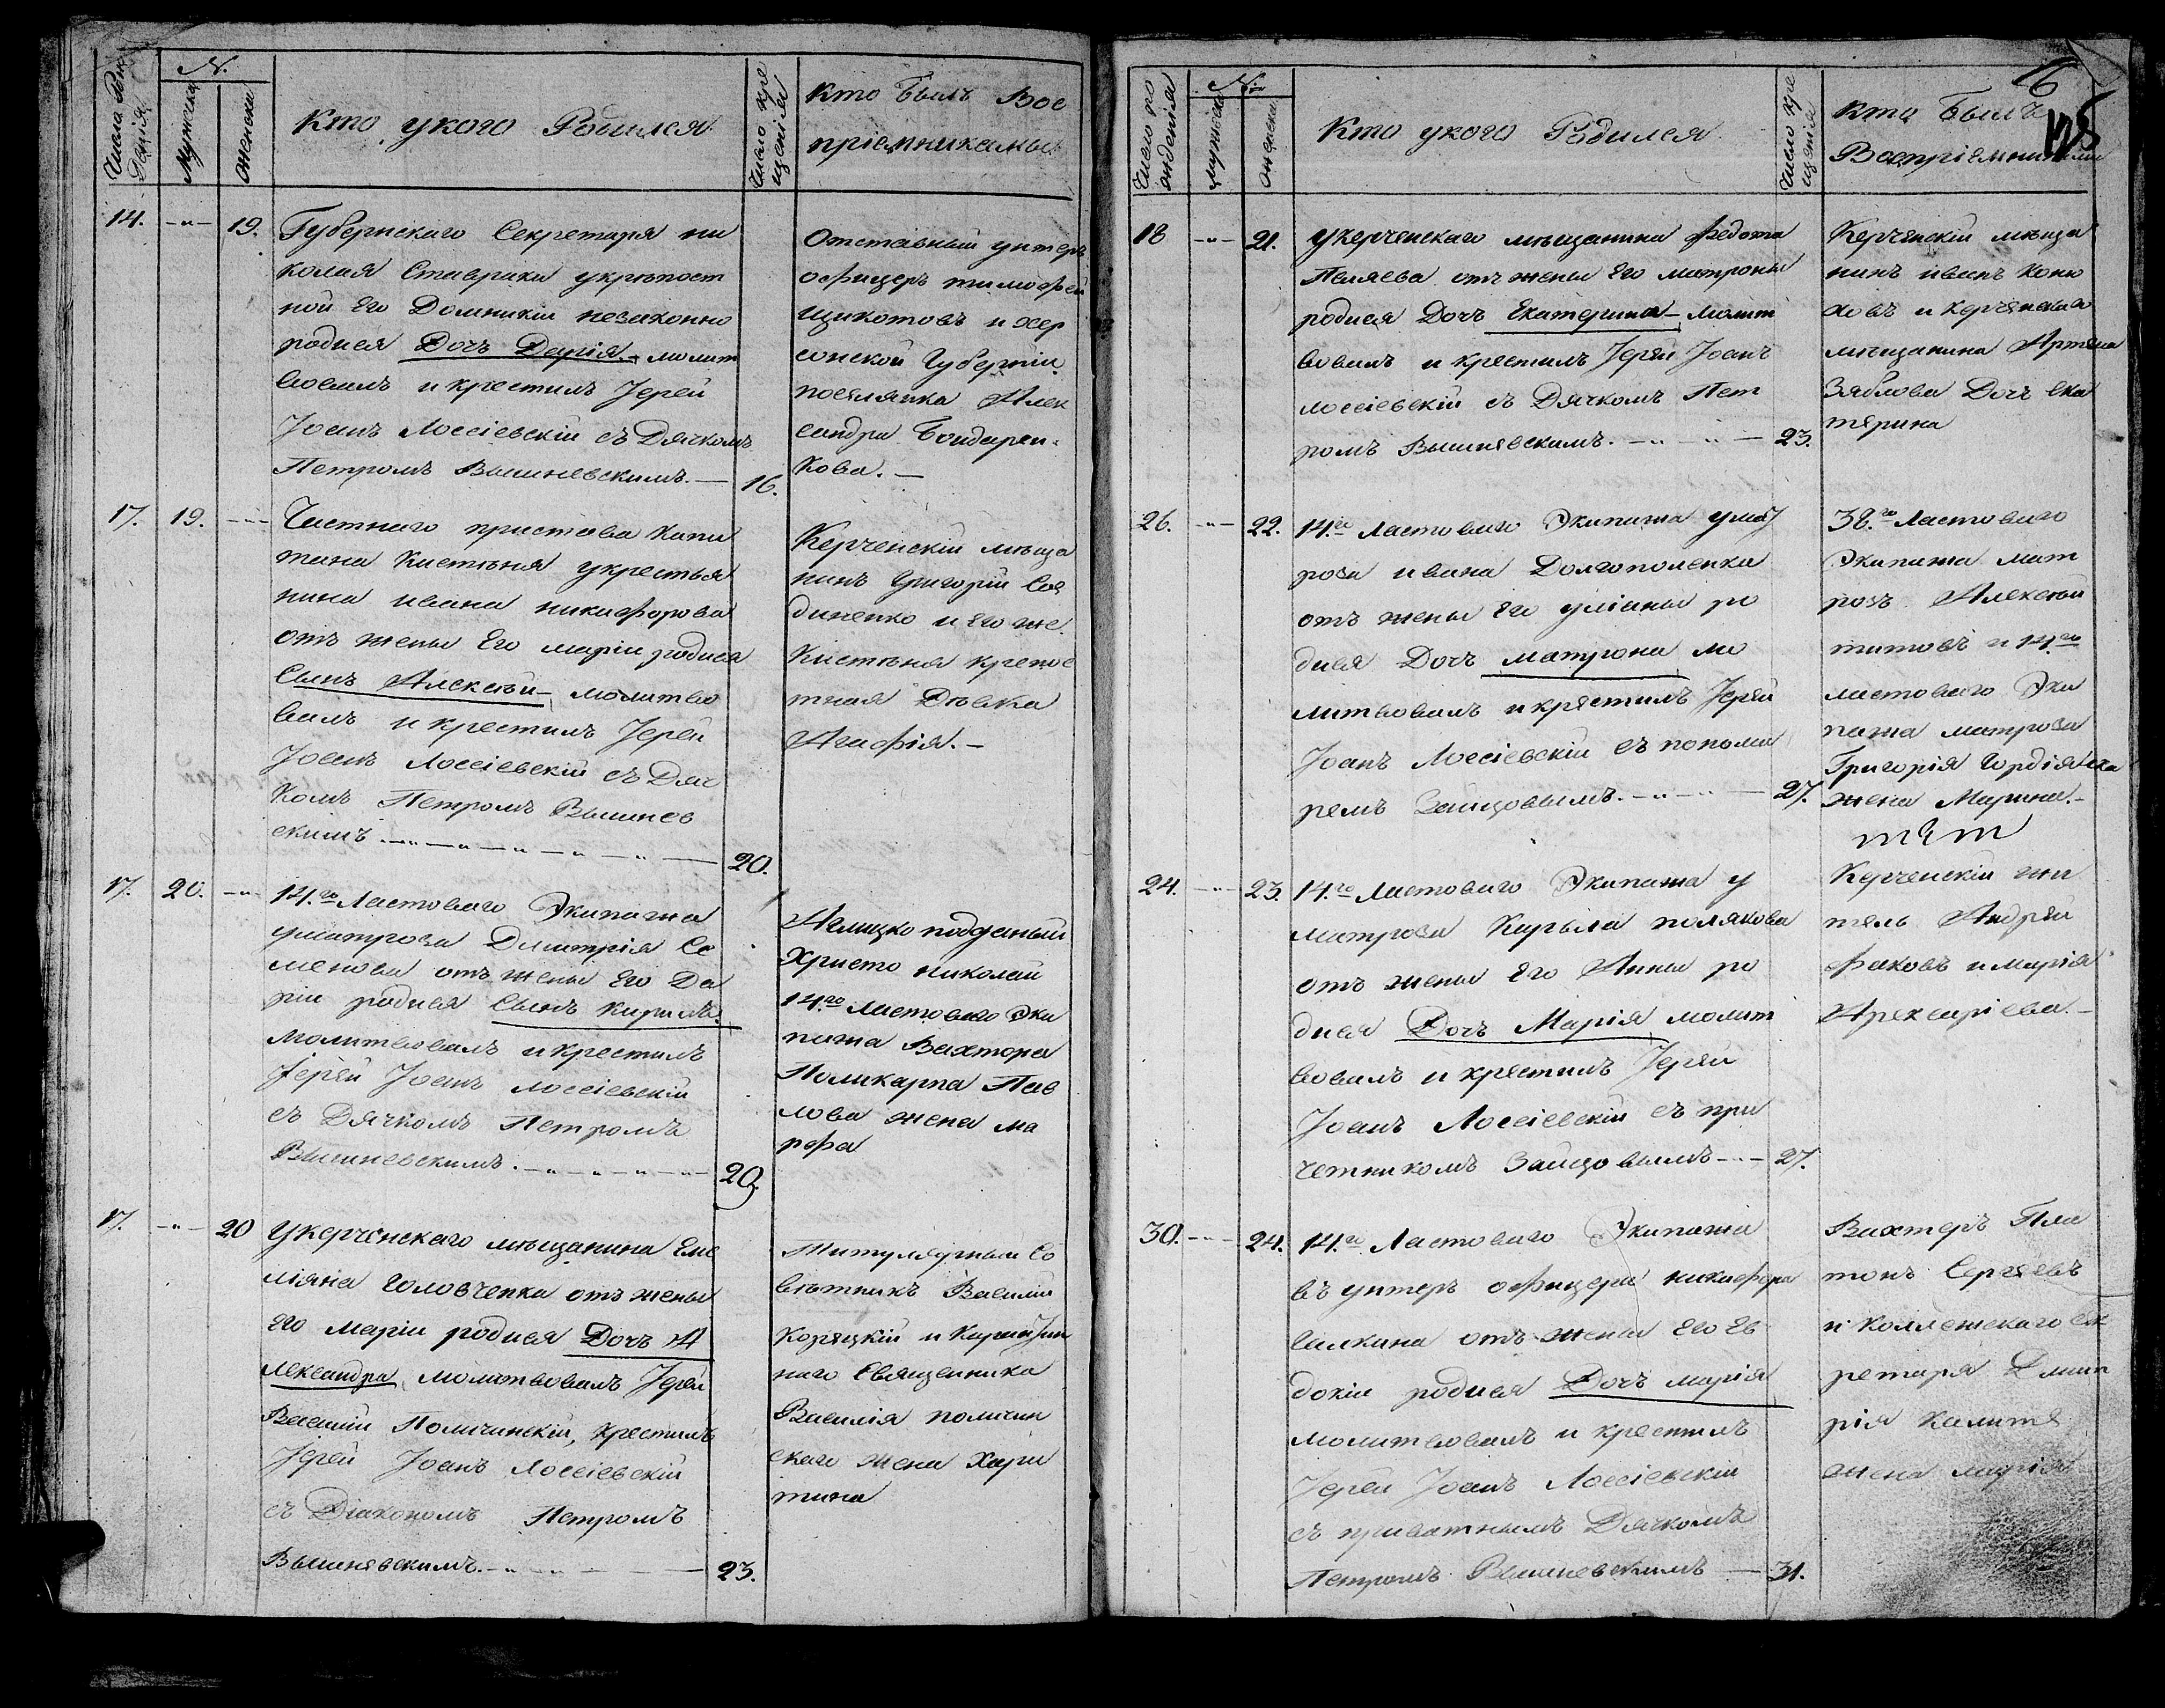 Число Рож
денія
N.
Мужеска
Женска
Кто укого Родился
Число кре
щенія
Кто Былъ Вос
пріемникамы
14. -"- 19.
Губернскаго Секретаря ни
колая Ставраки укрѣпост
ной Его Домникіи незаконно
родися Дочь Дарія молит
вовалъ и крестилъ Іерей
Іоанъ Лоссіевскій съ Дячкомъ
Петромъ Вышневскимъ. — 16.
Отставный унтеръ
офицеръ тимофей
щикотовъ и хер
сонской Губерніи
поселянка Алек
сандра Бондарен-
кова. —
17. 19. -"-
Частнаго пристава капи
тана Кистѣня укрестья
нина ивана никифорова
отъ жены Его маріи родися
Сынъ Алексѣй молитво
валъ и крестилъ Іерей
Іоанъ Лоссіевскій съ Дяч
комъ Петромъ Вышнев
скимъ. — " — " — 20.
Керченскій мѣща
нинъ Григорій Сое
диненко и Его же
Кистѣня крепос
тная Дѣвка
Агафія. —
17. 20. -"-
14.го Ластоваго Экипажа
уматроза Димитрія Се
менова отъ жены Его Да
ріи родися Сынъ Кирилъ
молитвовалъ и крестилъ
Іерей Іоанъ Лоссіевскій
съ Дячкомъ Петромъ
Вышневскимъ. — " — " — 20.
Аглицко подданый
Христо николай
14.го Ластоваго Эки
пажа Вахтера
Поликарпа Пав
лова жена ма
рфа
17. -"- 20
Укерченскаго мѣщанина Еме
ліяна Головченка отъ жены
его маріи родися Дочь А
лександра, молитвовалъ Іерей
Василій Поличинскій, крестилъ
Іерей Іоанъ Лоссіевскій
съ Діакономъ Петромъ
Вышневскимъ. — " — 23.
Титулярный Со
вѣтникъ Василій
Козяцкій и
наго Священника
Василія поличин
скаго жена Хари
тина
6
Число ро
жденія
N.
мужеска
Женска
Кто укого Родился
Число кре
щенія
Кто Былъ
Воспріемниками
18 -"- 21.
Укерченскаго мѣщанина федота
Пеляева отъ жены Его матроны
родися Дочь Екатерина молит
вовалъ и крестилъ Іерей Іоанъ
лоссіевскій съ Дячкомъ Пет
ромъ Вышневскимъ. — " — " — 23.
Керченскій мѣща
нинъ иванъ Коню
ховъ и керченскаго
мѣщанина Артема
Зяблова Дочь ека
терина
26. -"- 22.
14.го Ластоваго Экипажа умат
роза ивана Долгополенка
отъ жены Его уліаны ро
дися Дочь матрона мо
литвовалъ и крестилъ Іерей
Іоанъ Лоссіевскій съ понома
ремъ Зайцовымъ. — " — " — 27.
38.го Ластоваго
Экипажа мат
розъ Алексѣй
титовъ и 14.го
ластоваго Эки
пажа матроза
Григорія Гордіянка
жена Марина. —
24. -"- 23.
14.го Ластоваго Экипажа у
матроза Кирыла полякова
отъ жены Его Анны ро
дися Дочь Марія молит
вовалъ и крестилъ Іерей
Іоанъ Лоссіевскій съ при
четникомъ Зайцовымъ — " — 27.
Керченскій жи
тель Андрей
факовъ и марія
30. -"- 24.
14.го Ластоваго Экипажа
въ унтеръ офицера никифора
Галкина отъ жены Его Ев
докіи родися Дочь марія
молитвовалъ и крестилъ
Іерей Іоанъ Лоссіевскій
съ приватнымъ Дячкомъ
Петромъ Вышневскимъ — 31.
Вахтеръ Пла
тонъ Сергеевъ
и коллежскаго сек
ретаря Дмит
рія Калите
жена марія